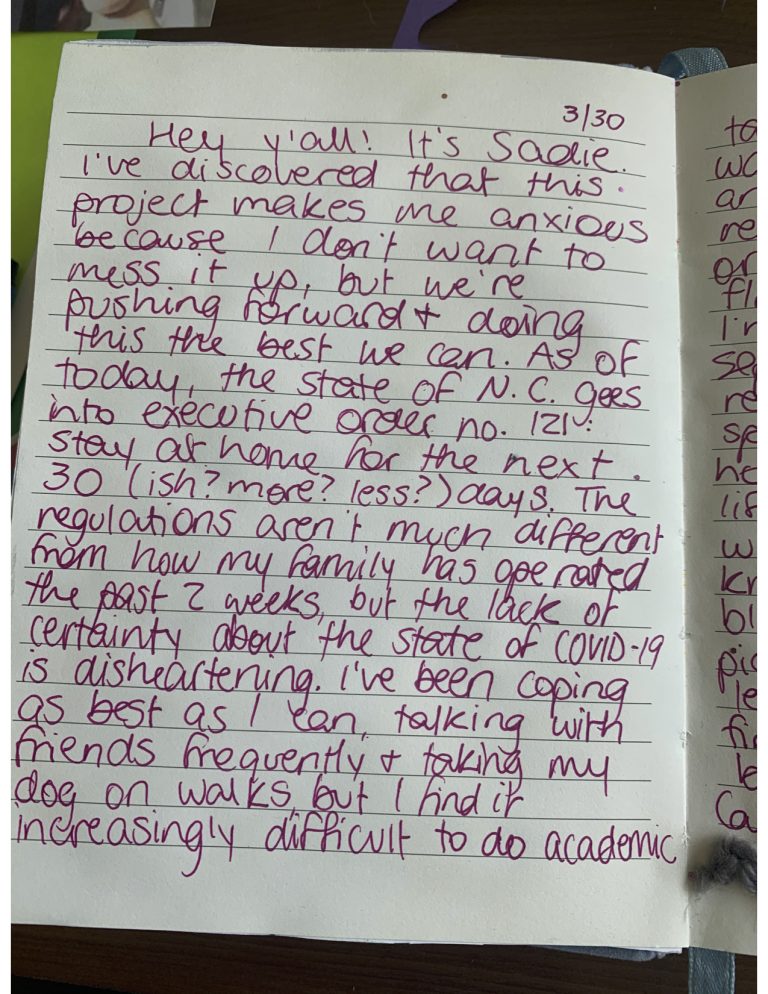 3/30
Hey y'all! It's Sadie.
I've discovered that this
project makes me anxious
because I don't want to
mess it up, but we're
pushing forward + doing
this the best we can. As of
today, the state of N.C. goes
into executive order no. 121:
stay at home for the next
30 (ish? more? less?) days. The
regulations aren't much different
from how my family has operated
the past 2 weeks, but the lack of
certainty about the state of COVID-19
is disheartening. I've been coping
as best as I can, talking with
friends frequently + taking my
dog on walks, but I find it
increasingly difficult to do academic
to
re
or
fl
se
re
sp
he
w
kr
bl
pic
le
fi
Ca